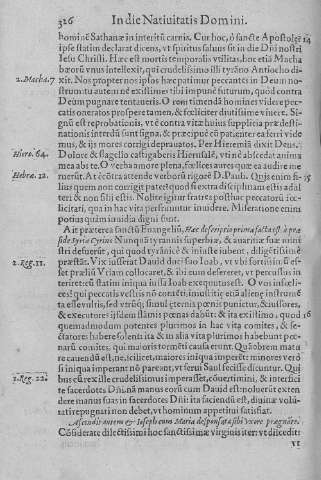 326 In die Natiuitatis Domini.
hominē Sathanæ in interitū carnis. Cur hoc, ô sancte Apostole? 14
ipse statim declarat dicens, vt spiritus saluus sit in die Dñi nostri
Iesu Christi. Hæc est mortis temporalis vtilitas, hoc etiā Macha
2. Macha. 7 bæorū vnus intellexit, qui crudelissimo illi tyrāno Antiocho di-
xit. Nos propter nos ipsos hæc patimur peccantes in Deum no-
strum: tu autem nē existimes tibi impunē futurum, quòd contra
Deum pugnare tentaueris. O rem timendā homines videre pec-
catis oneratos prosperè tamen, & fœliciter diutissimè viuere. Si-
gnū est reprobationis, vt è contra vitæ huius supplicia prædesti-
nationis interdū sunt signa, & præcipuè cū patienter ea ferri vide
mus, & ijs mores corrigi deprauatos. Per Hieremiā dixit Deus.
Hiere. 6. Dolore & flagello castigaberis Hierusalē, vt nē abscedat anima
mea abs te. O verba amore plena, fœlices aures quæ ea audire me
Hebræ. 12. ruerūt. At è cōtra attende verborū rigorē D. Pauli. Quis enim fi- 15
lius quem non corrigit pater? quod si extra disciplinam estis adul
teri & non filij estis. Nolite igitur fratres posthac peccatorū fœ-
licitati, quòd in hac vita perfruantur inuidere. Miseratione enim
potius quàm inuidia digni sunt.
Ait præterea sanctū Euangeliū, Hæc descriptio prima facta est à præ
side Syriæ Cyrino Nunquā tyrannis superbiæ, & auaritiæ suæ mini
stri defuerūt, qui quod tyrānicè & iniustè iubent, diligētissimè
2. Reg. 11. præstāt. Vix iusserat Dauid duci suo Ioab, vt vbi fortior iā ef-
set præliū Vriam collocaret, & ibi eum desereret, vt percussus in
teriret: cū statim iniqua iussa Ioab exequutus est. O vos infœli-
ces! qui peccatis vestris nō contēti, imo istiusce
etiā
esse vultis, sed verūs, sunt etiam pœnis punictur, & iustores,
& executores ipsdem
pœnas dabūt: & ita existimo, quod 16
quemadmodum potentes plurimos in hac vita comites, & se-
ctatores habere solent ita & in alia vita plurimos habebunt pœ-
narū comites, qui maioris tormēti causa erunt. Quāobrem matu
re cauendū est, ne, scilicet, maiores iniqua imperēt: minores verò
si iniqua imperant nō pareant, vt serui Saul fecisse dicuntur. Qui
1. Reg. 22. bus cū rex ille crudelissimus imperasset, conuertimini, & interfici
te sacerdotes Dñi: nā manus eorū cum Dauid est: noluerūt exten
dere manus suas in sacerdotes Dñi: ita faciendū est, diuinæ volu-
tati repugnari non debet, vt hominum appetitui satisfiat.
Ascendit autem & Ioseph cum Maria desponsata sibi vxore prægnāte.
Cōsiderate dilectissimi hoc sanctissimæ virginis iter: vt discedit:
vt